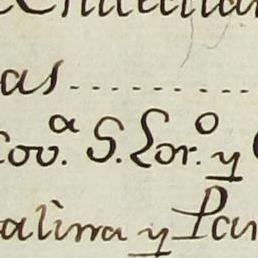 as..........
cov.ª S. Lor.º y
alina y Par